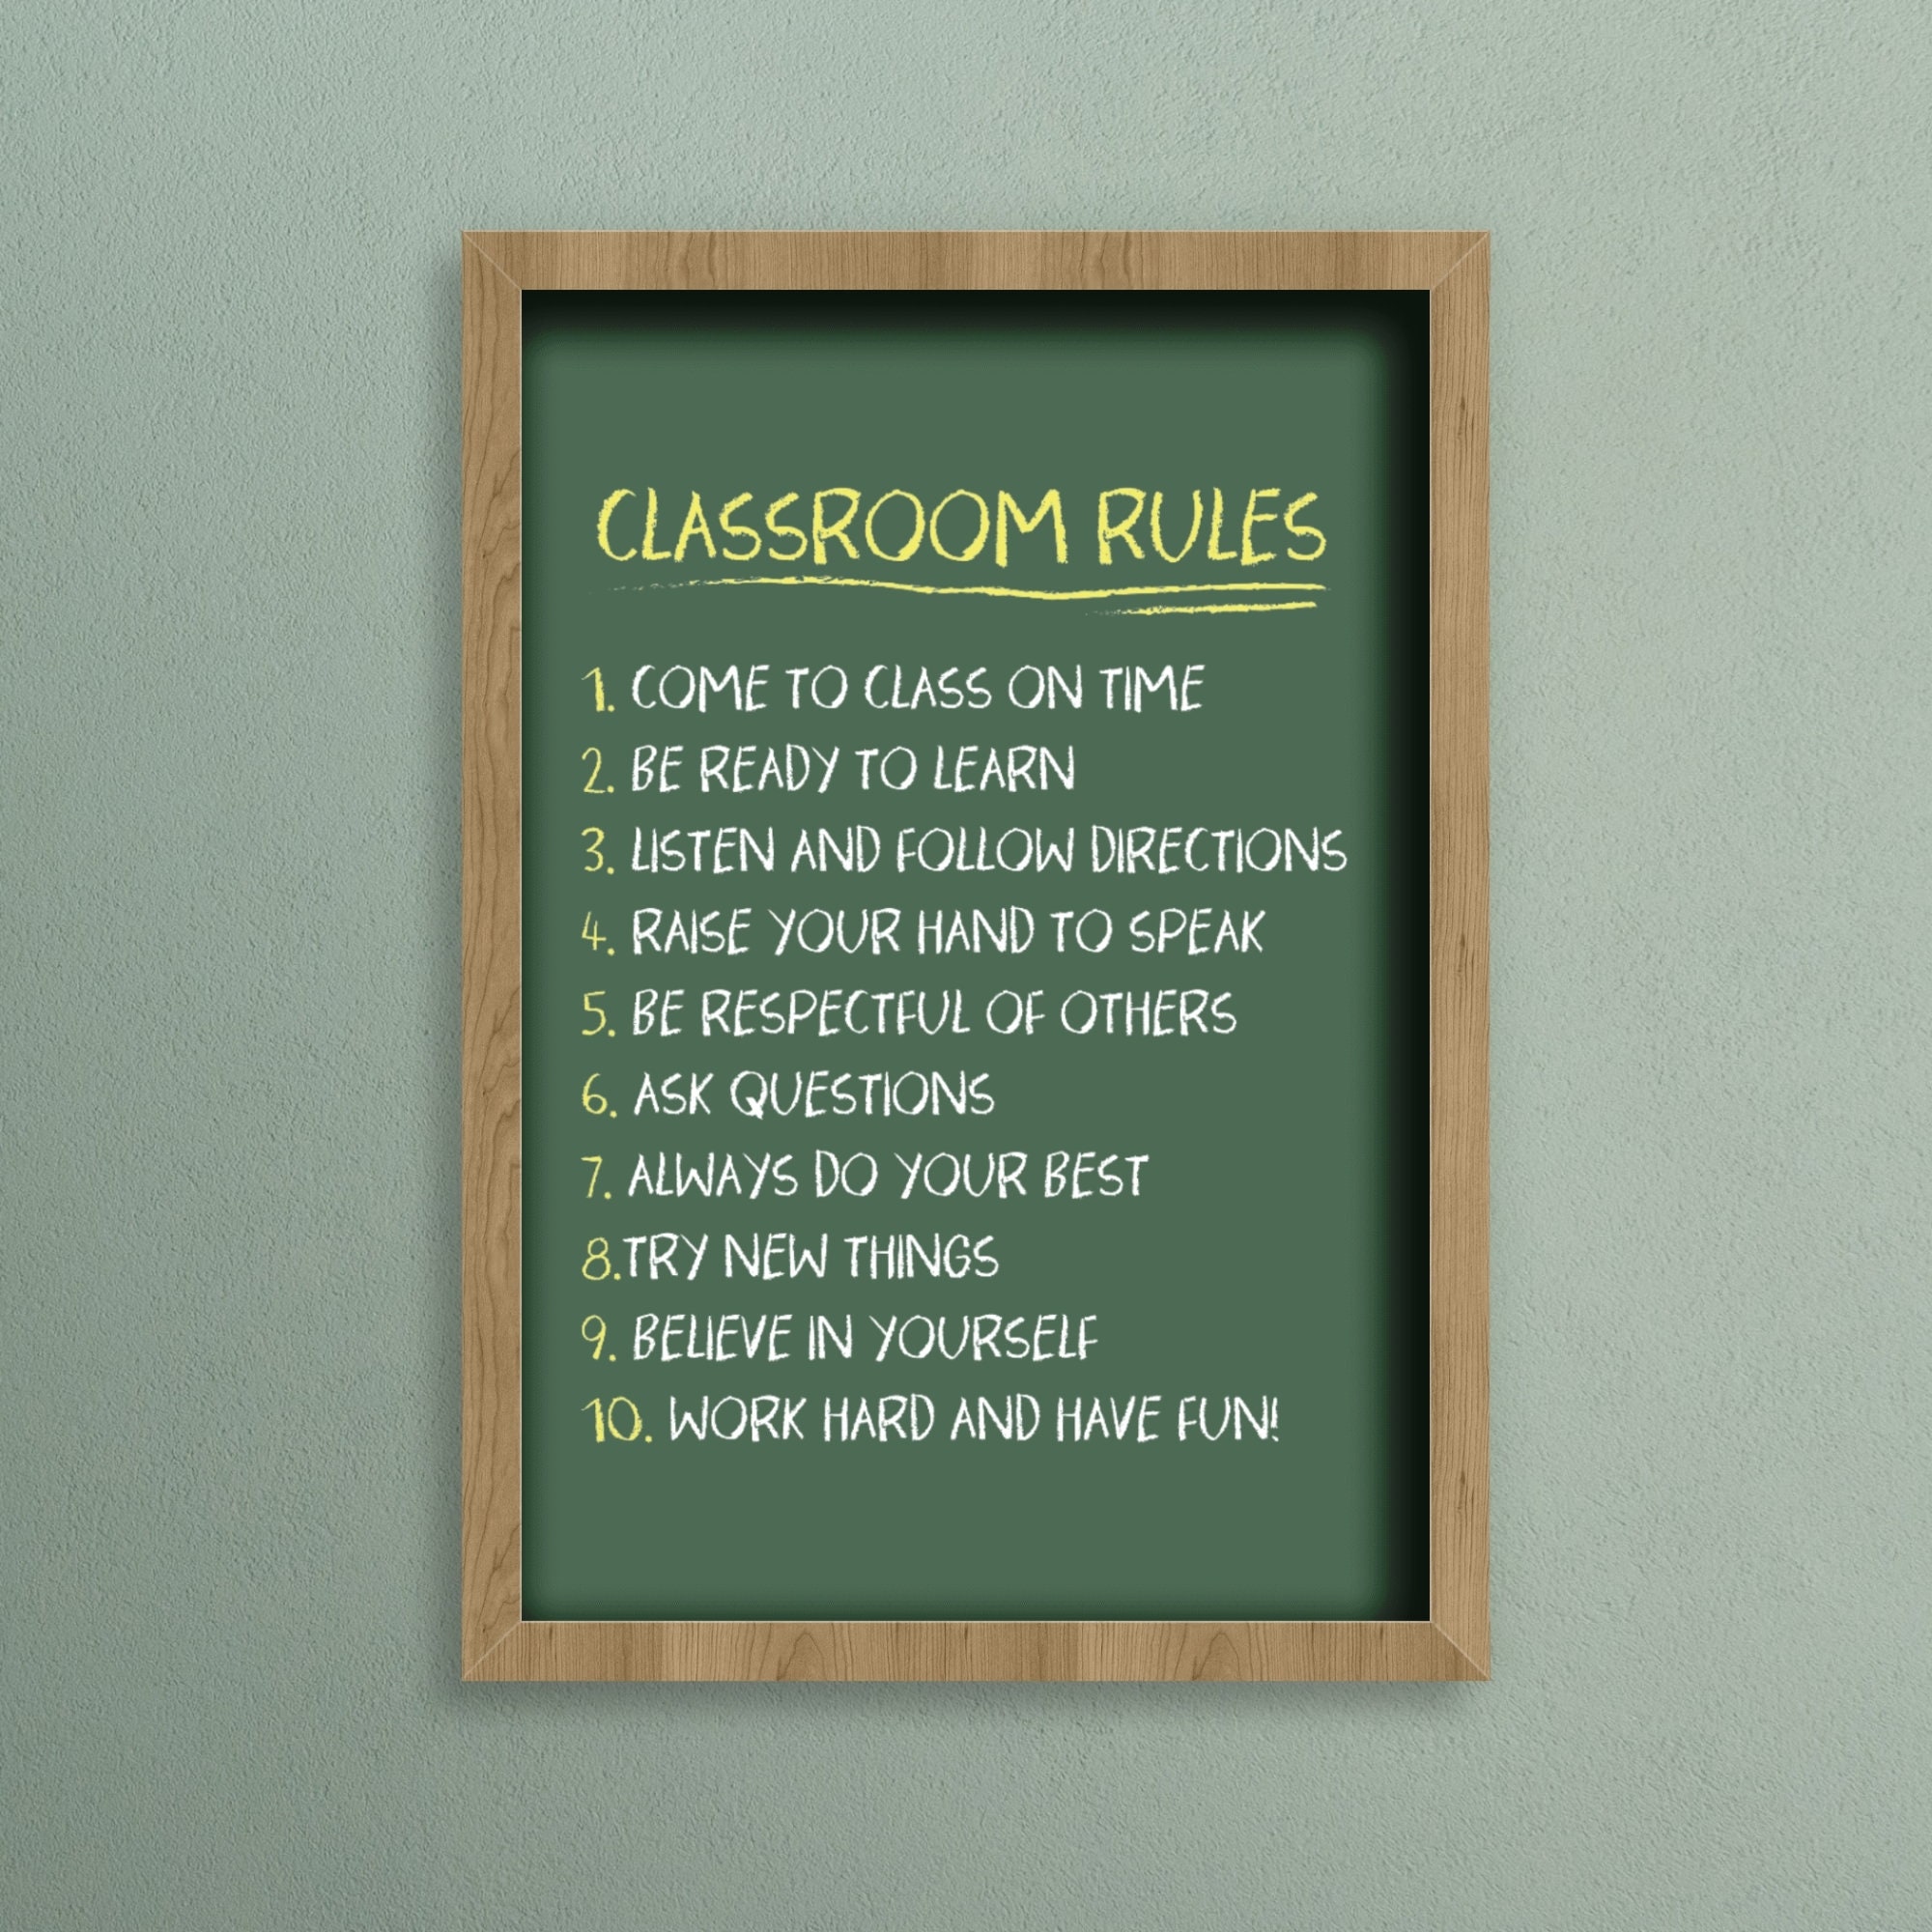 CLASSROOM RULES
1. COME TO CLASS ON TIME
2. BE READY TO LEARN
3. LISTEN AND FOLLOW DIRECTIONS
4. RAISE YOUR HAND TO SPEAK
5. BE RESPECTFUL OF OTHERS
6. ASK QUESTIONS
7. ALWAYS DO YOUR BEST
8.TRY NEW THINGS
9. BELIEVE IN YOURSELF
10. WORK HARD AND HAVE FUN!